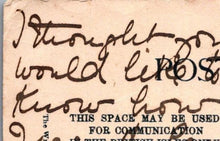 I thought you
would like to
POS
know how
THIS SPACE MAY BE USED
FOR COMMUNICATION
The W